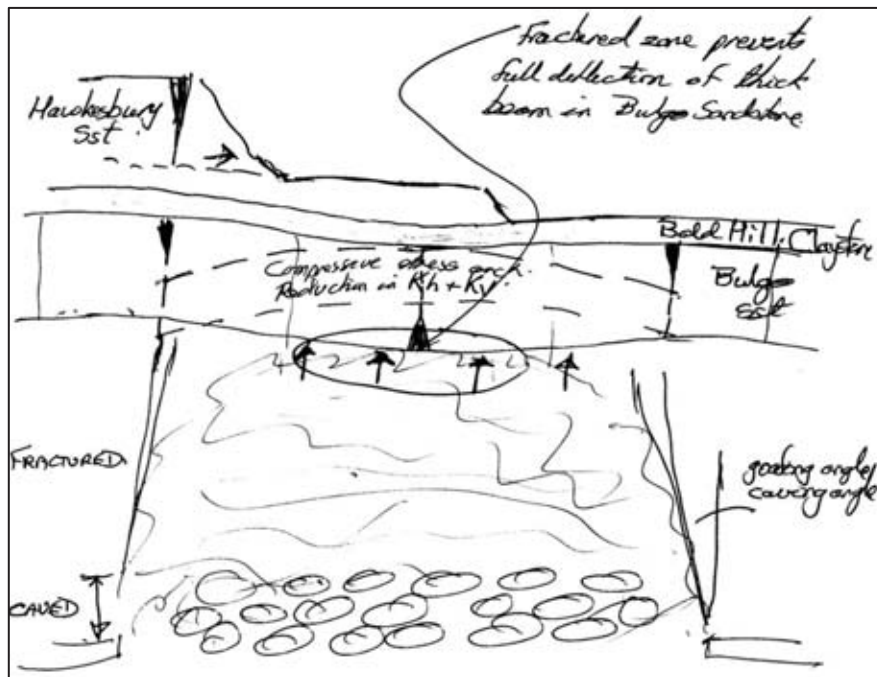 Fractured zone prevents
full deflection of thick
beam in Bulgo Sandstone.
Hawkesbury
Sst.
Bald Hill Claystone
Compressive stress arch.
Reduction in Kh + Kv.
Bulgo
Sst
FRACTURED
goafing angle/
caving angle
CAVED